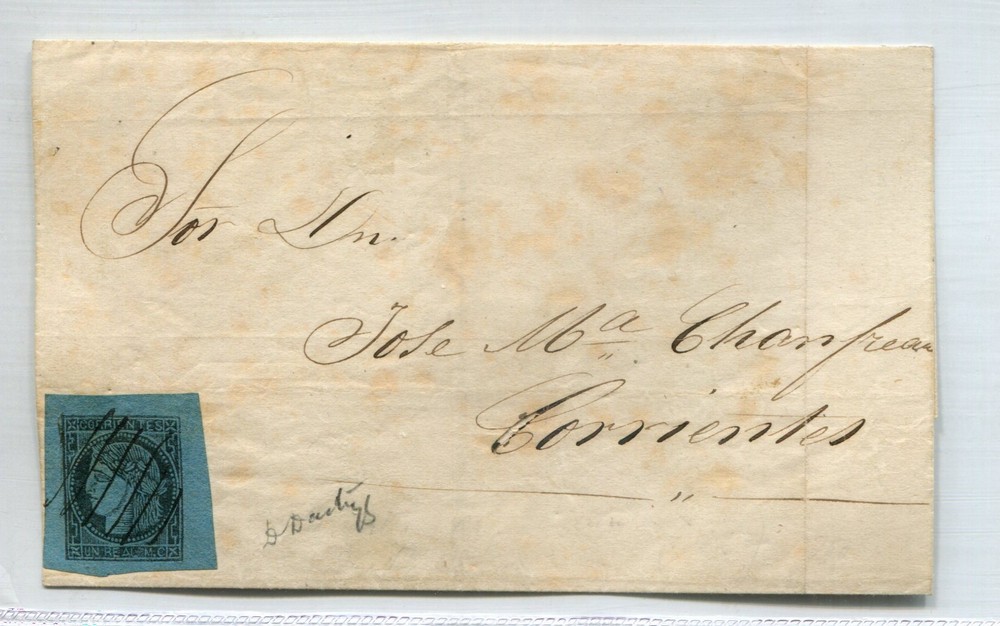 Sor Dn.
Jose Ma Chanfreau
Corrientes
CORRIENTES
UN REAL M.C.